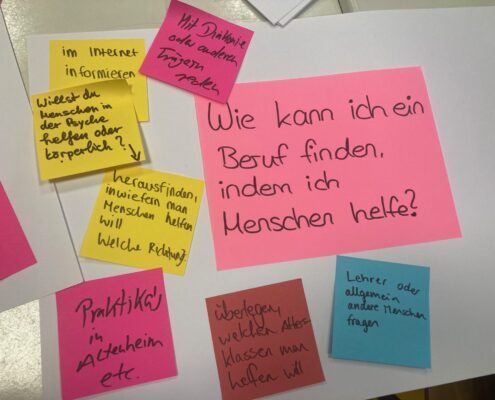 im Internet
informieren
Mit Diakonie
oder anderen
Trägern
reden
Willst du
Menschen in
der Psyche
helfen oder
körperlich?
herausfinden,
inwiefern man
Menschen helfen
will
Welche Richtung?
Wie kann ich ein
Beruf finden,
indem ich
Menschen helfe?
Praktika,
in
Altenheim
etc.
überlegen,
welchen Alters-
klassen man
helfen will
Lehrer oder
allgemein
andere Menschen
fragen